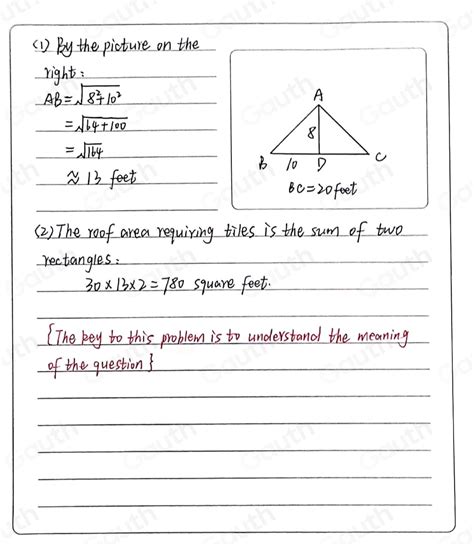 (1) By the picture on the
right:
AB=√8²+10²
=√64+100
=√164
≈ 13 feet
A
8
B 10 D C
BC=20 feet
(2) The roof area requiring tiles is the sum of two
rectangles:
30×13×2=780 square feet.
{The key to this problem is to understand the meaning
of the question}